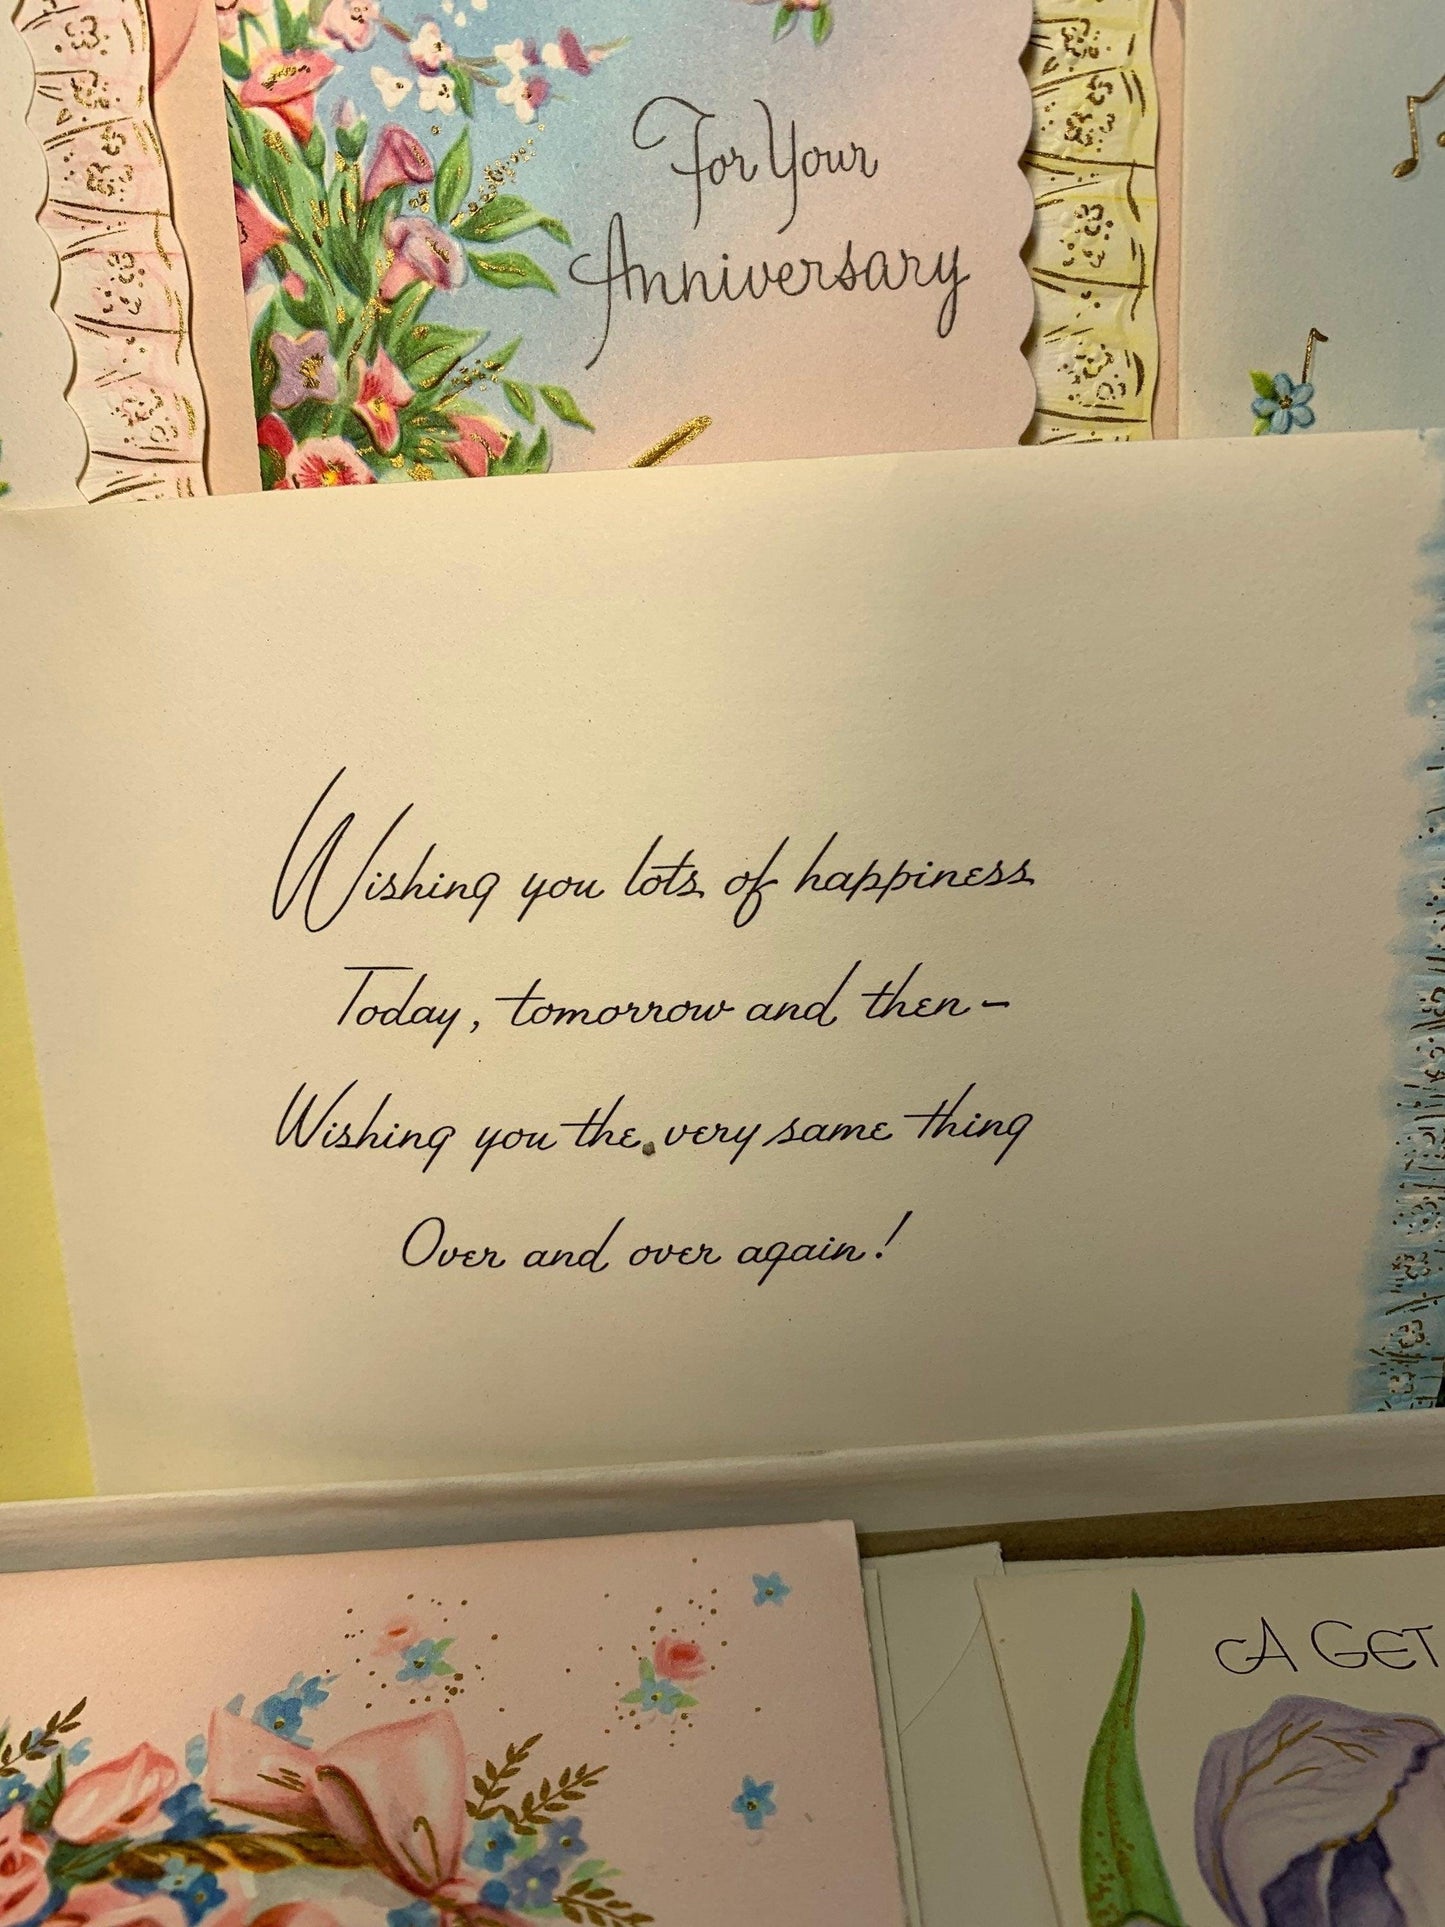 For Your
Anniversary
Wishing you lots of happiness
Today, tomorrow and then-
Wishing you the very same thing
Over and over again!
A GET